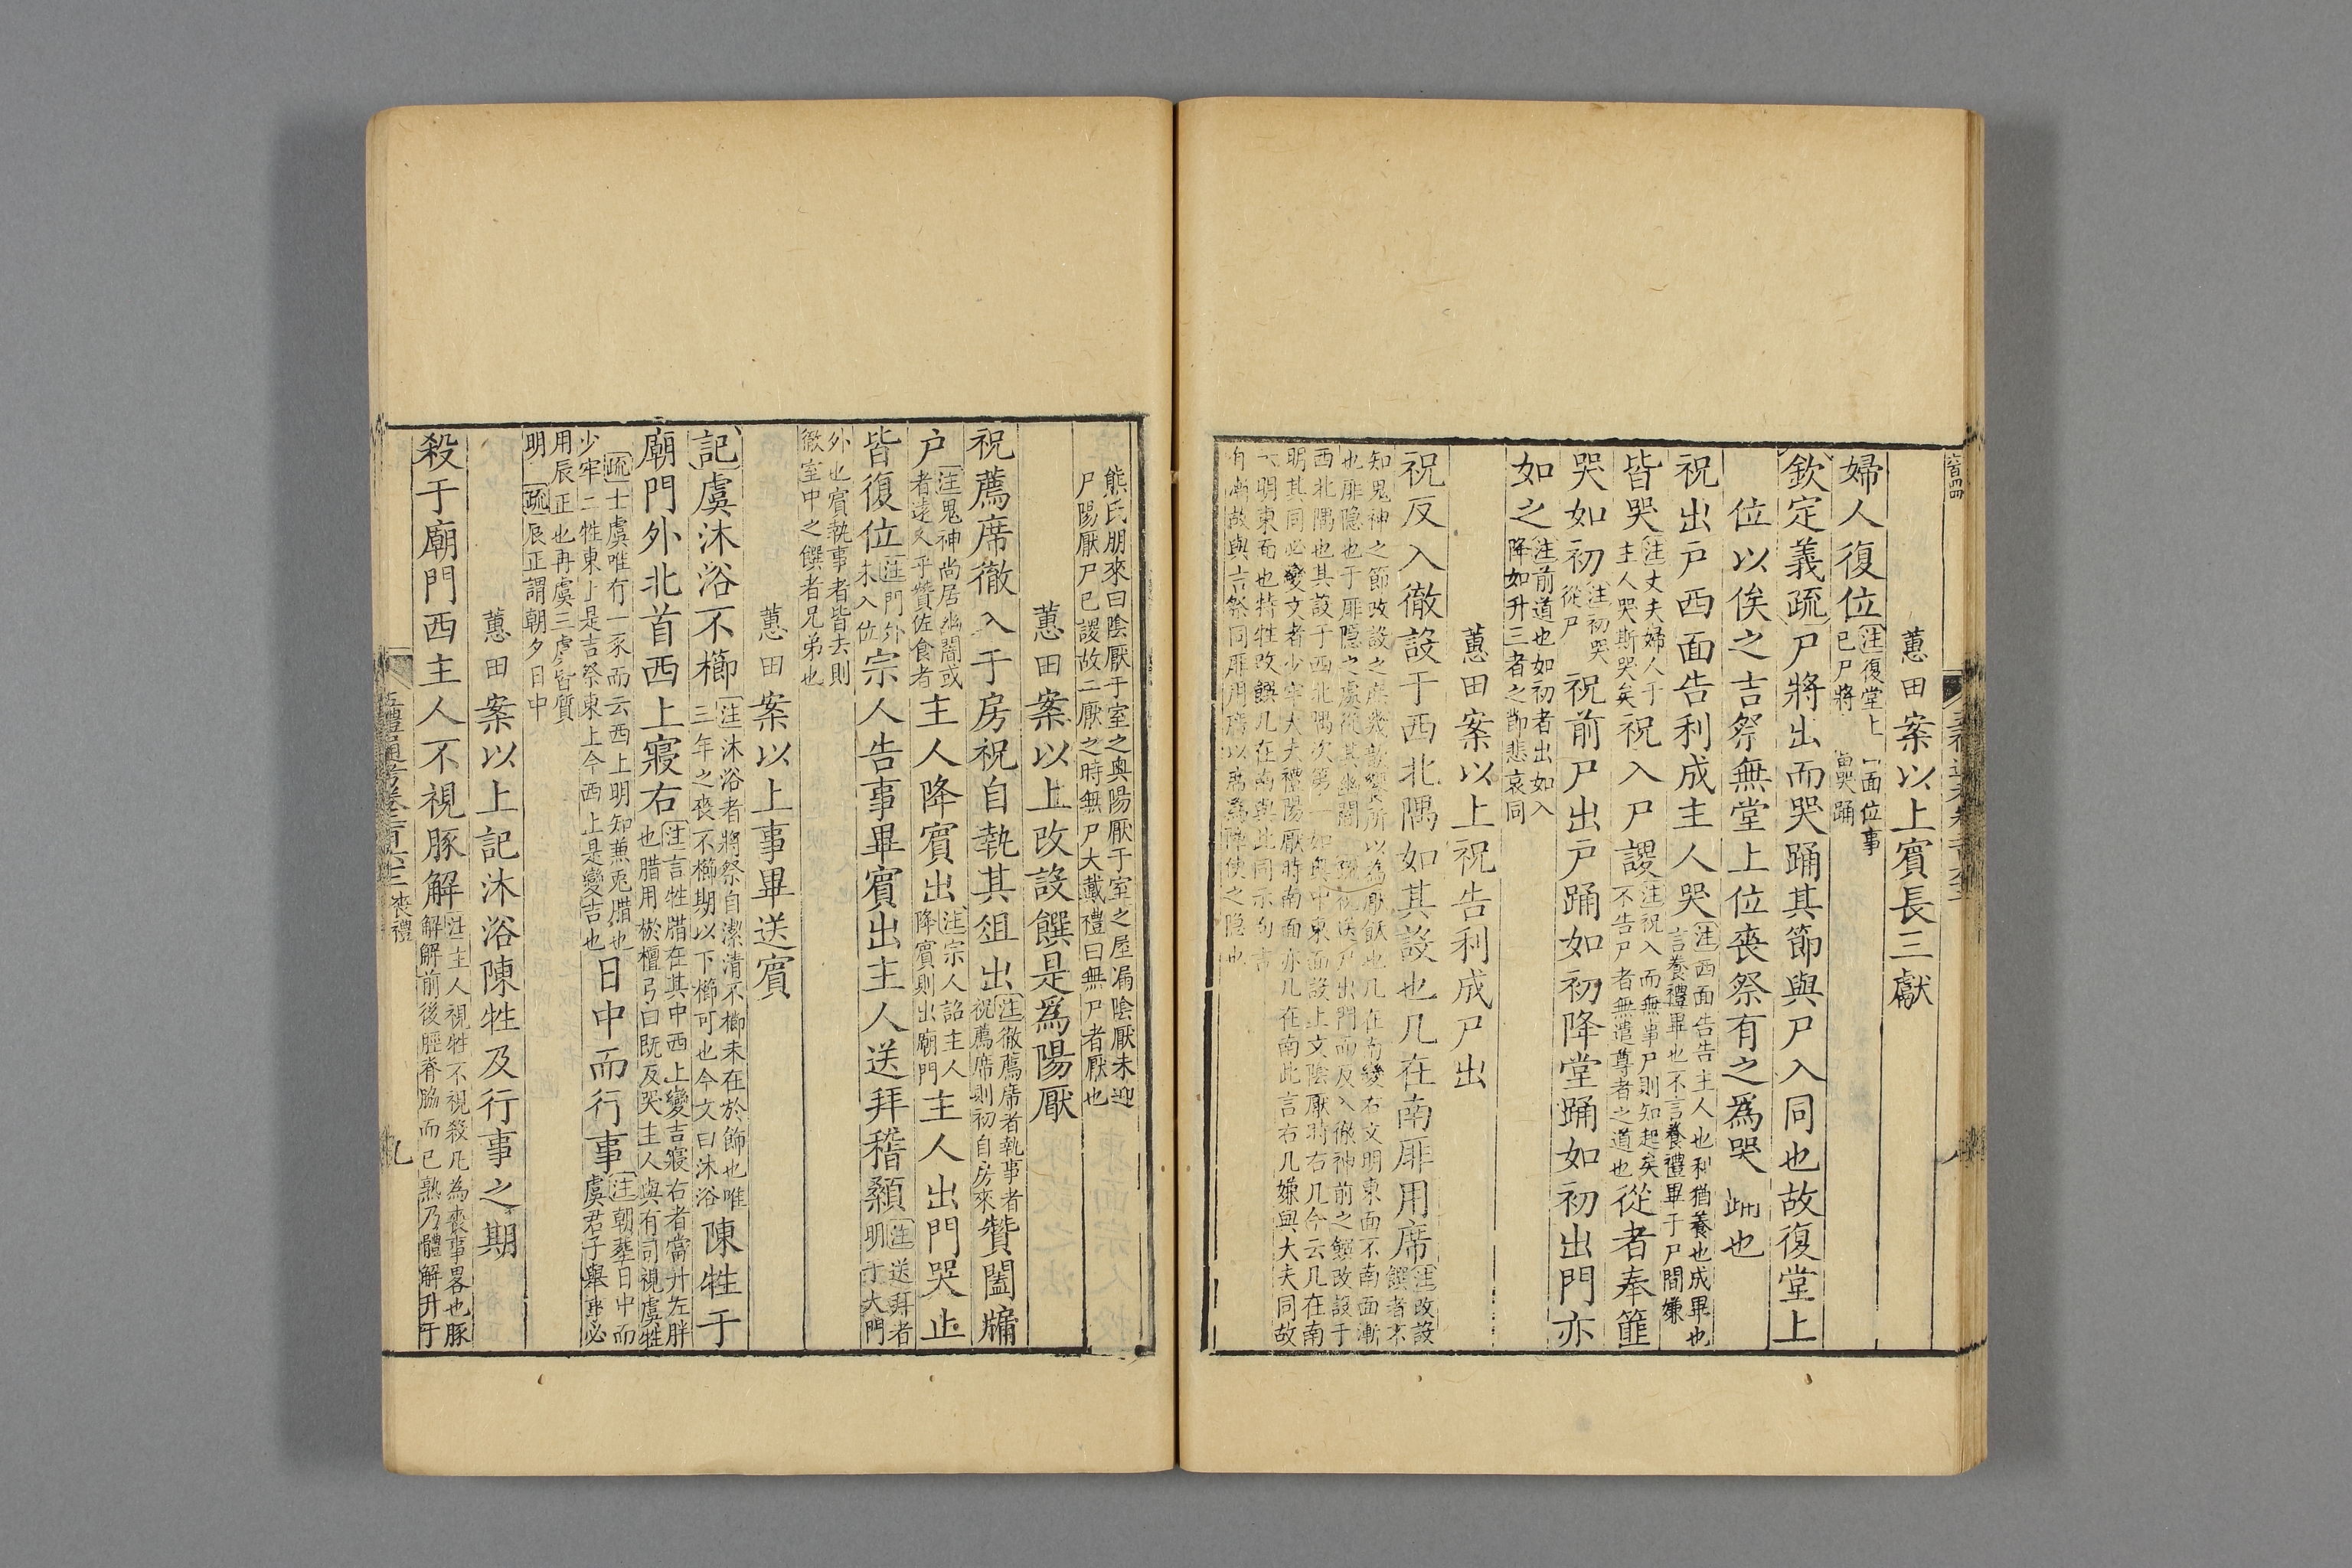 蕙田案以上賓長三獻
婦人復位
注復堂上
面位事
已尸將
當哭踊
欽定義疏尸將出而哭踊其節與尸入同也故復堂上
位以俟之吉祭無堂上位喪祭有之為哭踊也
祝出戶西面告利成主人哭
注西面告告主人也利猶養也成畢也
言養禮畢也不言養禮畢于尸間嫌
皆哭
注丈夫婦人于
主人哭斯哭矣
祝入尸謖
注祝入而無事尸則知起矣
不告尸者無遣尊者之道也
從者奉篚
哭如初
注初哭
從尸
祝前尸出戶踊如初降堂踊如初出門亦
如之
注前道也如初者出如入
降如升三者之節悲哀同
蕙田案以上祝告利成尸出
祝反入徹設于西北隅如其設也几在南厞用席
注改設
饌者不
知鬼神之節改設之庶幾歆饗所以為厭飫也几在南變右文明東面不南面漸
也厞隱也于厞隱之處從其幽闇
疏祝送尸出門而反入徹神前之饌改設于
西北隅也其設于西北隅次第一如奧中東面設上文陰厭時右几今云几在南
明其同必變文者少牢大夫禮陽厭時南面亦几在南此言右几嫌與大夫同故
云明東面也特牲改饌几在南與此同示向吉
有尚故與吉祭同厞用席以席為障使之隱也
熊氏朋來曰陰厭于室之奧陽厭于室之屋漏陰厭未迎
尸陽厭尸已謖故二厭之時無尸大戴禮曰無尸者厭也
蕙田案以上改設饌是為陽厭
祝薦席徹入于房祝自執其俎出
注徹薦席者執事者
祝薦席則初自房來
贊闔牖
戶
注鬼神尚居幽闇或
者遠人乎贊佐食者
主人降賓出
注宗人詔主人
降賓則出廟門
主人出門哭止
皆復位
注門外
未入位
宗人告事畢賓出主人送拜稽顙
注送拜者
明于大門
外也賓執事者皆去則
徹室中之饌者兄弟也
蕙田案以上事畢送賓
記虞沐浴不櫛
注沐浴者將祭自潔清不櫛未在於飾也唯
三年之喪不櫛期以下櫛可也今文曰沐浴
陳牲于
廟門外北首西上寢右
注言牲腊在其中西上變吉寢右者當升左胖
也腊用棜檀弓曰既反哭主人與有司視虞牲
疏士虞唯有一豕而云西上明知兼兎腊也
少牢二牲東上是吉祭東上今西上是變吉也
日中而行事
注朝葬日中而
虞君子舉事必
用辰正也再虞三虞皆質
明
疏辰正謂朝夕日中
蕙田案以上記沐浴陳牲及行事之期
殺于廟門西主人不視豚解
注主人視牲不視殺凡為喪事畧也豚
解解前後脛脊脇而已熟乃體解升于
五禮通考卷二百六十三 喪禮
九